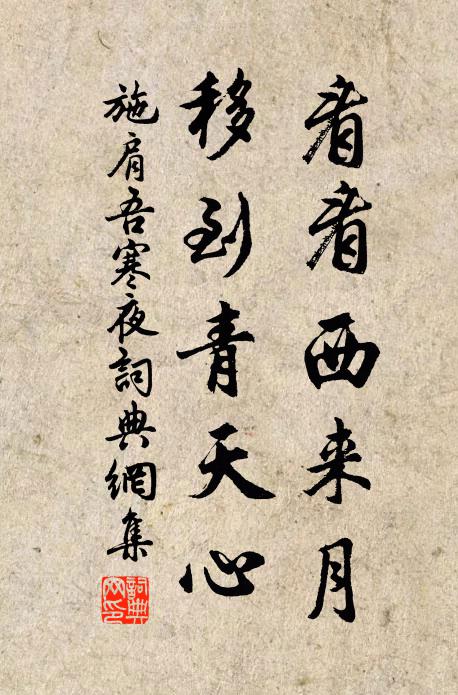 看看西来月
移到青天心
施肩吾寒夜詞典網集
詞典網印